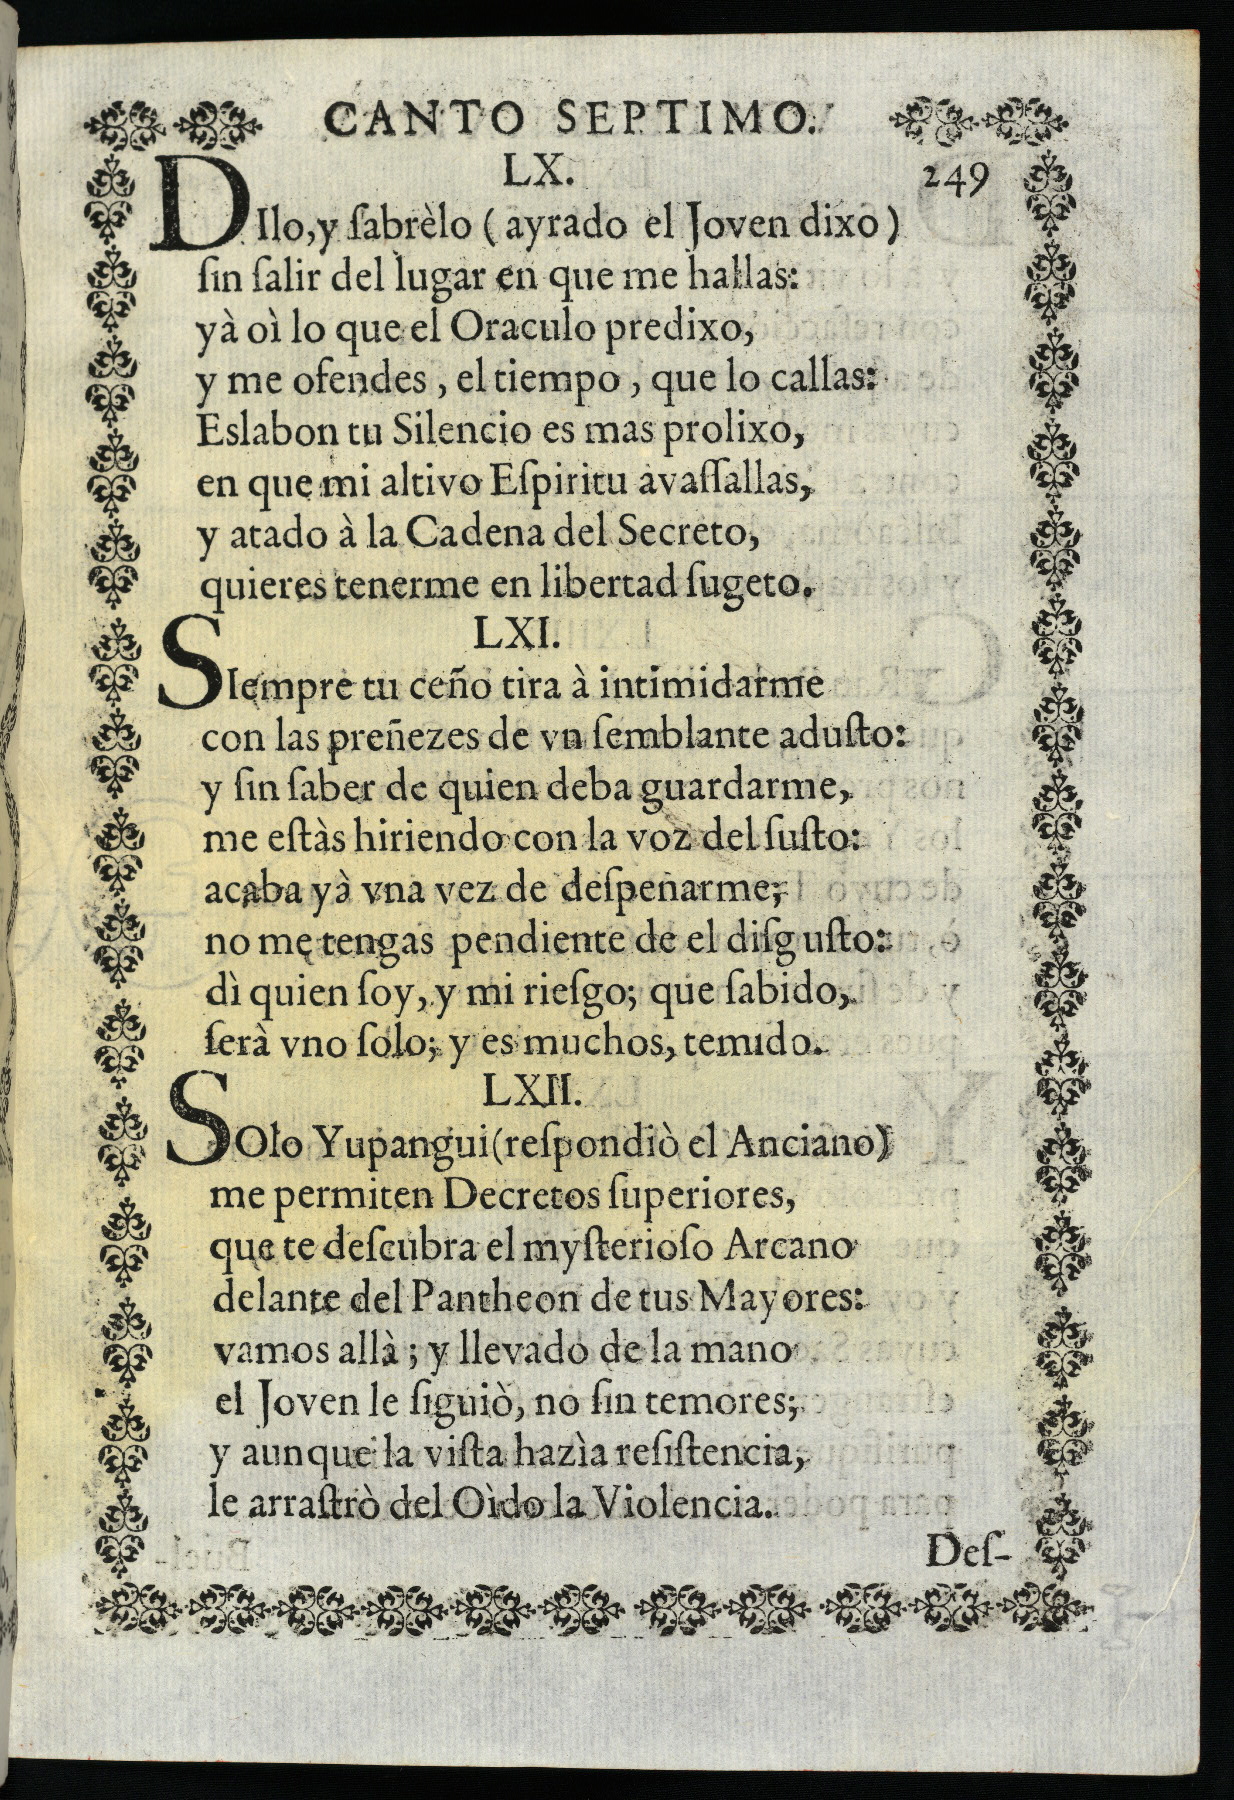 CANTO SEPTIMO.
LX.
249
DIlo, y ſabrèlo ( ayrado el Joven dixo )
ſin ſalir del lugar en que me hallas:
yà oì lo que el Oraculo predixo,
y me ofendes , el tiempo , que lo callas:
Eslabon tu Silencio es mas prolixo,
en que mi altivo Eſpiritu avaſſallas,
y atado à la Cadena del Secreto,
quieres tenerme en libertad ſugeto.
LXI.
SIempre tu ceño tira à intimidarme
con las preñezes de vn ſemblante aduſto:
y ſin ſaber de quien deba guardarme,
me eſtàs hiriendo con la voz del ſuſto:
acaba yà vna vez de deſpeñarme;
no me tengas pendiente de el diſguſto:
dì quien ſoy, y mi rieſgo; que ſabido,
ſerà vno ſolo; y es muchos, temido.
LXII.
SOlo Yupangui (reſpondiò el Anciano)
me permiten Decretos ſuperiores,
que te deſcubra el myſterioſo Arcano
delante del Pantheon de tus Mayores:
vamos allà ; y llevado de la mano
el Joven le ſiguiò, no ſin temores;
y aunque la viſta hazìa reſiſtencia,
le arraſtrò del Oìdo la Violencia.
Deſ-